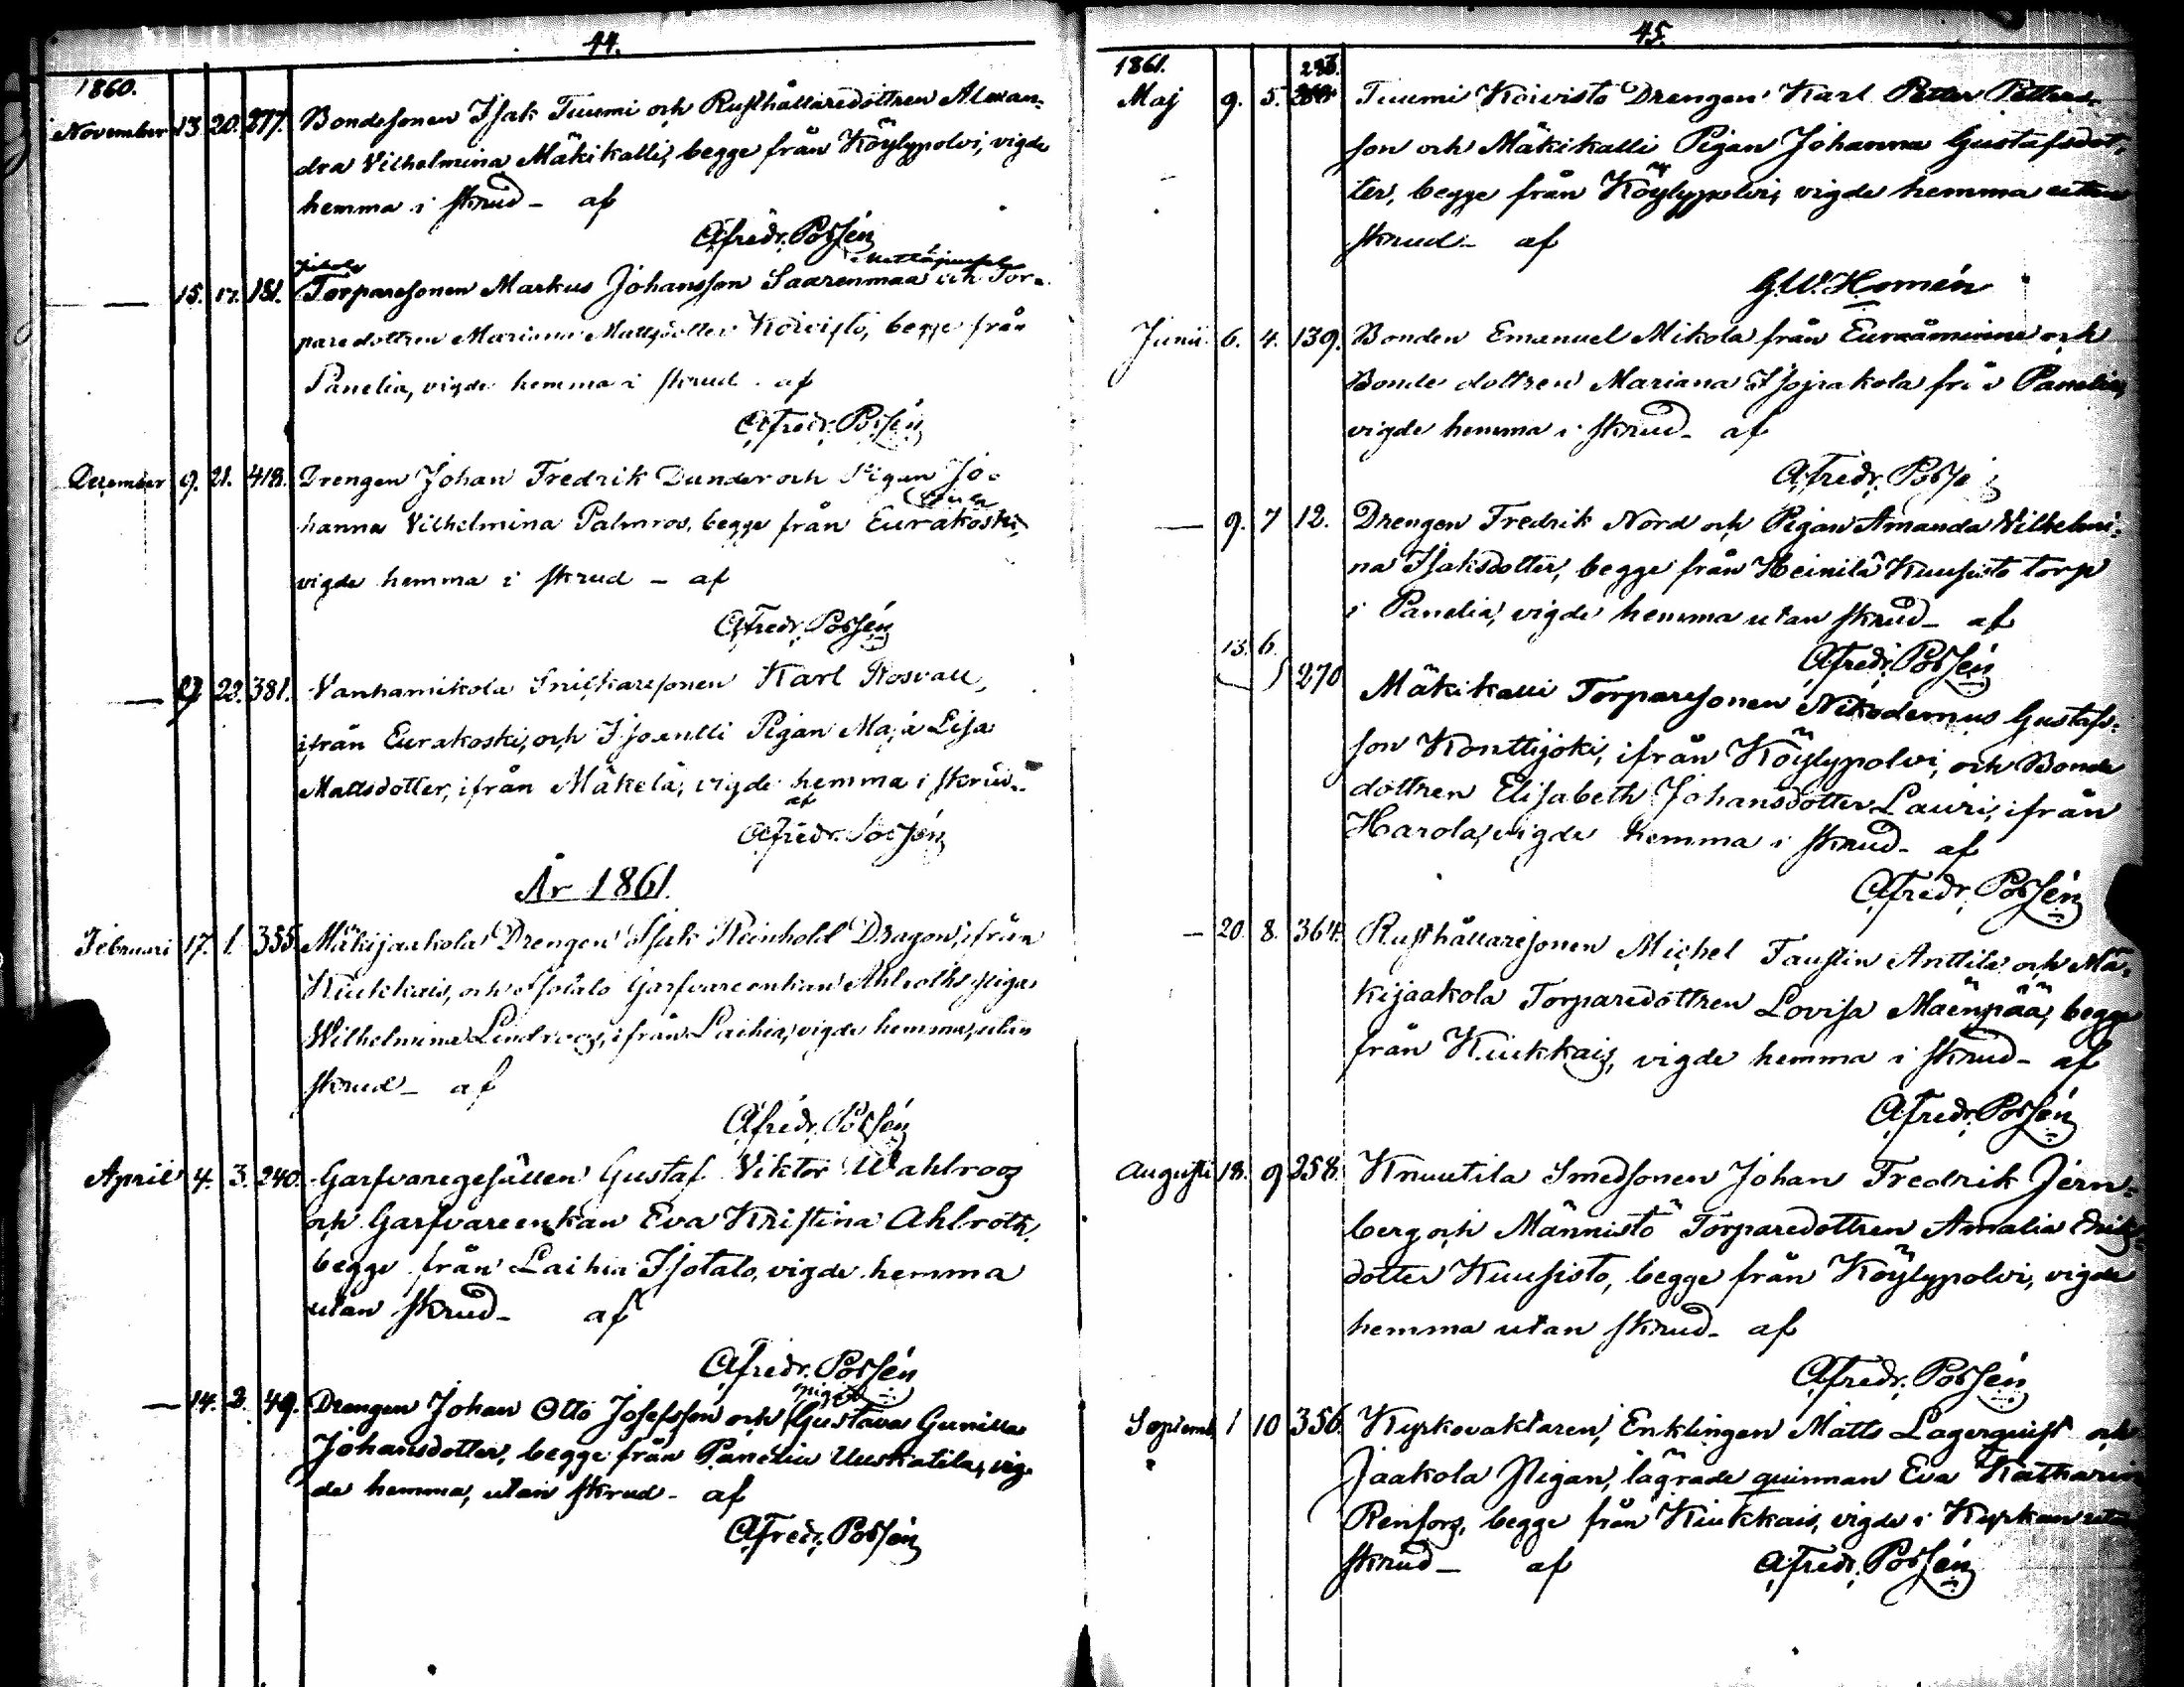 44.
1860.
November 13. 20. 277. Bondesonen Isak Tuumi och Rusthållaredottren Alexan-
dra Vilhelmina Mäkikalli, begge från Köylypolvi, vigde
hemma i skrud - af
Afredr. Possén
— 15. 17. 181. Torparesonen Markus Johansson Saarenmaa och Tor-
paredottren Mariana Mattsdotter Koivisto, begge från
Panelia, vigde hemma i skrud - af
Afredr. Possén
December 9. 21. 418. Drengen Johan Fredrik Dunder och Pigan Jo-
hanna Vilhelmina Palmros, begge från Eurakoski,
vigde hemma i skrud - af
Afredr. Possén
— 27. 22. 381. Vanhamikola Snickaresonen Karl Rosvall,
ifrån Eurakoski, och Isoantti Pigan Maja Lisa
Mattsdotter, ifrån Mäkelä, vigde hemma i skrud -
af
Afredr. Possén
År 1861.
Februari 17. 1. 355. Mäkijaakola Drengen Isak Reinhold Dragon, ifrån
Kiukkais, och Isotalo Garfvareenkan Ahlroths piga
Wilhelmina Lindroos, ifrån Laihia, vigde hemma, utan
skrud - af
Afredr. Possén
April 4. 3. 240. Garfvaregesällen Gustaf Viktor Wahlroos
och Garfvareenkan Eva Kristina Ahlroth,
begge från Laihia Isotalo, vigde hemma
utan skrud - af
Afredr. Possén
pigan
— 14. 2. 49. Drengen Johan Otto Josefsson och Gustava Gunilla
Johansdotter, begge från Panelia Uuskatila, vig-
de hemma, utan skrud - af
Afredr. Possén
45.
1861. 293.
Maj 9. 5. Tuumi Koivisto Drengen Karl Petter Petters-
son och Mäkikalli Pigan Johanna Gustafsdot-
ter, begge från Köylypolvi, vigde hemma utan
skrud - af
G.W. Homén
Junii 6. 4. 139. Bonden Emanuel Mikola från Euraåminne och
Bonde dottren Mariana Isojaakola från Panelia,
vigde hemma i skrud - af
Afredr. Possén
— 9. 7 12. Drengen Fredrik Nord och Pigan Amanda Vilhelmi-
na Isaksdotter, begge från Heinilä Kuusisto torp
i Panelia, vigde hemma utan skrud - af
Afredr. Possén
13. 6. 270 Mäkikalli Torparesonen Nikodemus Gustafs-
son Konttijoki, ifrån Köylypolvi, och Bonde
dottren Elisabeth Johansdotter Lauri, ifrån
Harola, vigde hemma i skrud - af
Afredr. Possén
— 20. 8. 364. Rusthållaresonen Michel Faustin Anttila och Mä-
kijaakola Torparedottren Lovisa Mäenpää, begge
från Kiukkais, vigde hemma i skrud - af
Afredr. Possén
Augusti 18. 9 258. Knuutila Smedsonen Johan Fredrik Jern-
berg och Männistö Torparedottren Amalia Eriks-
dotter Kuusisto, begge från Köylypolvi, vigde
hemma utan skrud - af
Afredr. Possén
Septemb. 1 10 356. Kyrkovaktaren, Enklingen Matts Lagerquist och
Jaakola Pigan, lägrade quinnan Eva Katharina
Renfors, begge från Kiukkais, vigde i Kyrkan utan
skrud - af Afredr. Possén